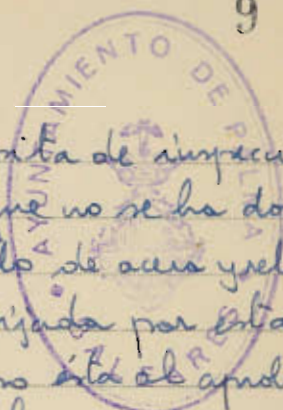 9
AYUNTAMIENTO DE PALMA
sita de inspecci
ue no se ha do
llo de acera y rel
rijada por esta
so ésta al apro